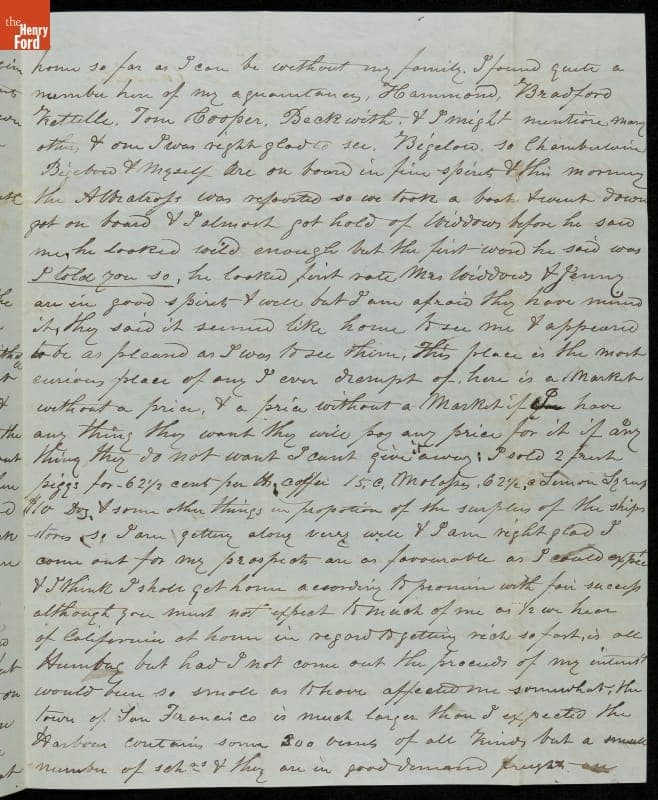 the
Henry
Ford
home so far as I can be without my family. I found quite a
number here of my aquantances, Hammond, Bradford
Kettelle, Tom Cooper, Beckwith, & I might mentione many
other, & one I was right glad to see, Bigelow, so Chamberlain
Bigelow & Myself are on board in fine spirits & this morning
the Albatross was reported so we took a boat & went down
got on board & I almost got hold of Widdows before he saw
me, he looked wild enough but the first word he said was
I told you so, he looked first rate Mrs Widdows & Jenny
are in good spirits & well but I am afraid they have mind
it, they said it seemed like home to see me & appeared
to be as pleased as I was to see them, This place is the most
curious place of any I ever drempt of, here is a Market
without a price, & a price without a Market if I have
any thing they want they will pay any price for it if any
thing they do not want I cant give it away, I sold 2 fresh
piggs for 62 1/2 cent per lb, coffee 15 c, Molasses, 62 1/2, Lemon Syrup
$10 Doz, & some other things in propotion of the surplus of the ships
stores so I am getting along very well & I am right glad I
come out for my prospects are as favourable as I could expect
& I think I shall get home according to promise with fair success
although you must not expect to much of me as 1/2 we hear
of California at home in regard to getting rich so fast, is all
Humbug but had I not come out the proceeds of my interest
would been so small as to have affected me somewhat, the
town of San Francisco is much larger than I expected the
Harbour contains some 300 vessels of all kinds but a small
number of schrs & they are in good demand freight are